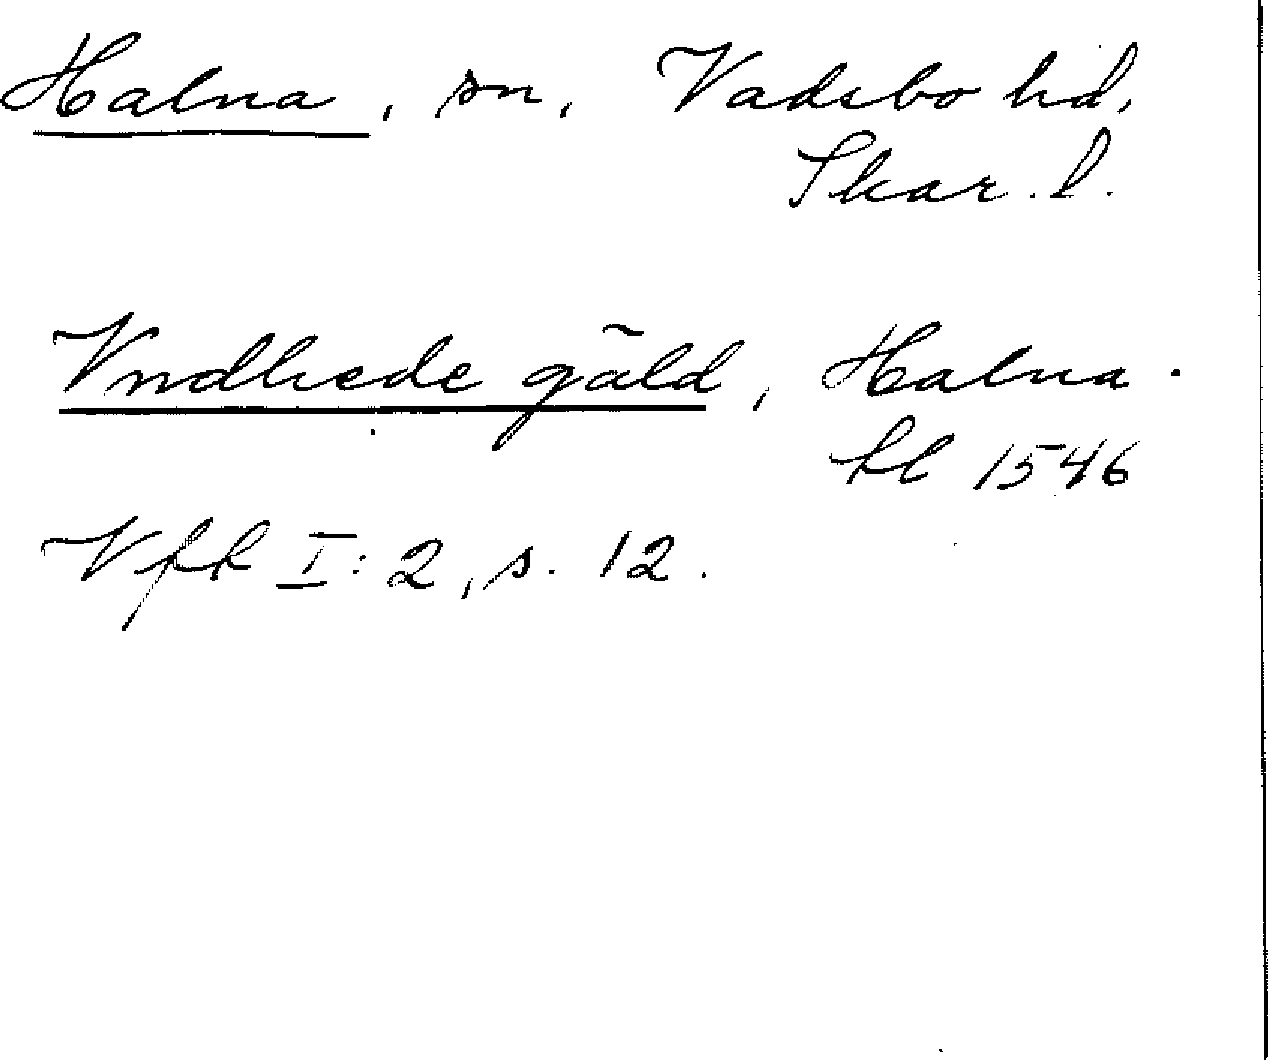 Halna, sn, Vadsbo hd,
Skar. l.
Vndhede gäld, Halna.
kl 1546
Vfk I:2, s. 12.